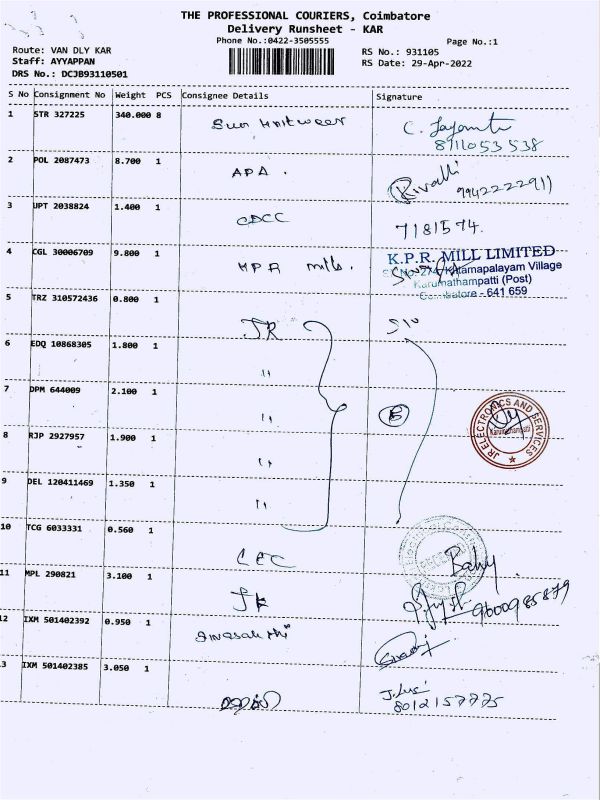 THE PROFESSIONAL COURIERS, Coimbatore
Delivery Runsheet - KAR
Phone No.:0422-3505555
Page No.:1
Route: VAN DLY KAR
RS No.: 931105
Staff: AYYAPPAN
RS Date: 29-Apr-2022
DRS No.: DCJB93110501
S No Consignment No Weight PCS Consignee Details Signature
1 STR 327225 340.000 8 Sun Knitwear
8911053538
2 POL 2087473 8.700 1 APA. 9942222911
3 UPT 2038824 1.400 1 CDCC 7181574.
4 CGL 30006709 9.800 1 KPR mills.
K.P.R. MILL LIMITED
Kittamapalayam Village
Karumathampatti (Post)
Coimbatore - 641 659
5 TRZ 310572436 0.800 1 JR
6 EDQ 10868305 1.800 1 "
7 DPM 644009 2.100 1 "
JR ELECTRONICS AND SERVICES
Karumathampatti
8 RJP 2927957 1.900 1 "
9 DEL 120411469 1.350 1 "
10 TCG 6033331 0.560 1 CEC
11 MPL 290821 3.100 1 JK 9600985879
12 IXM 501402392 0.950 1
3 IXM 501402385 3.050 1
8012157775